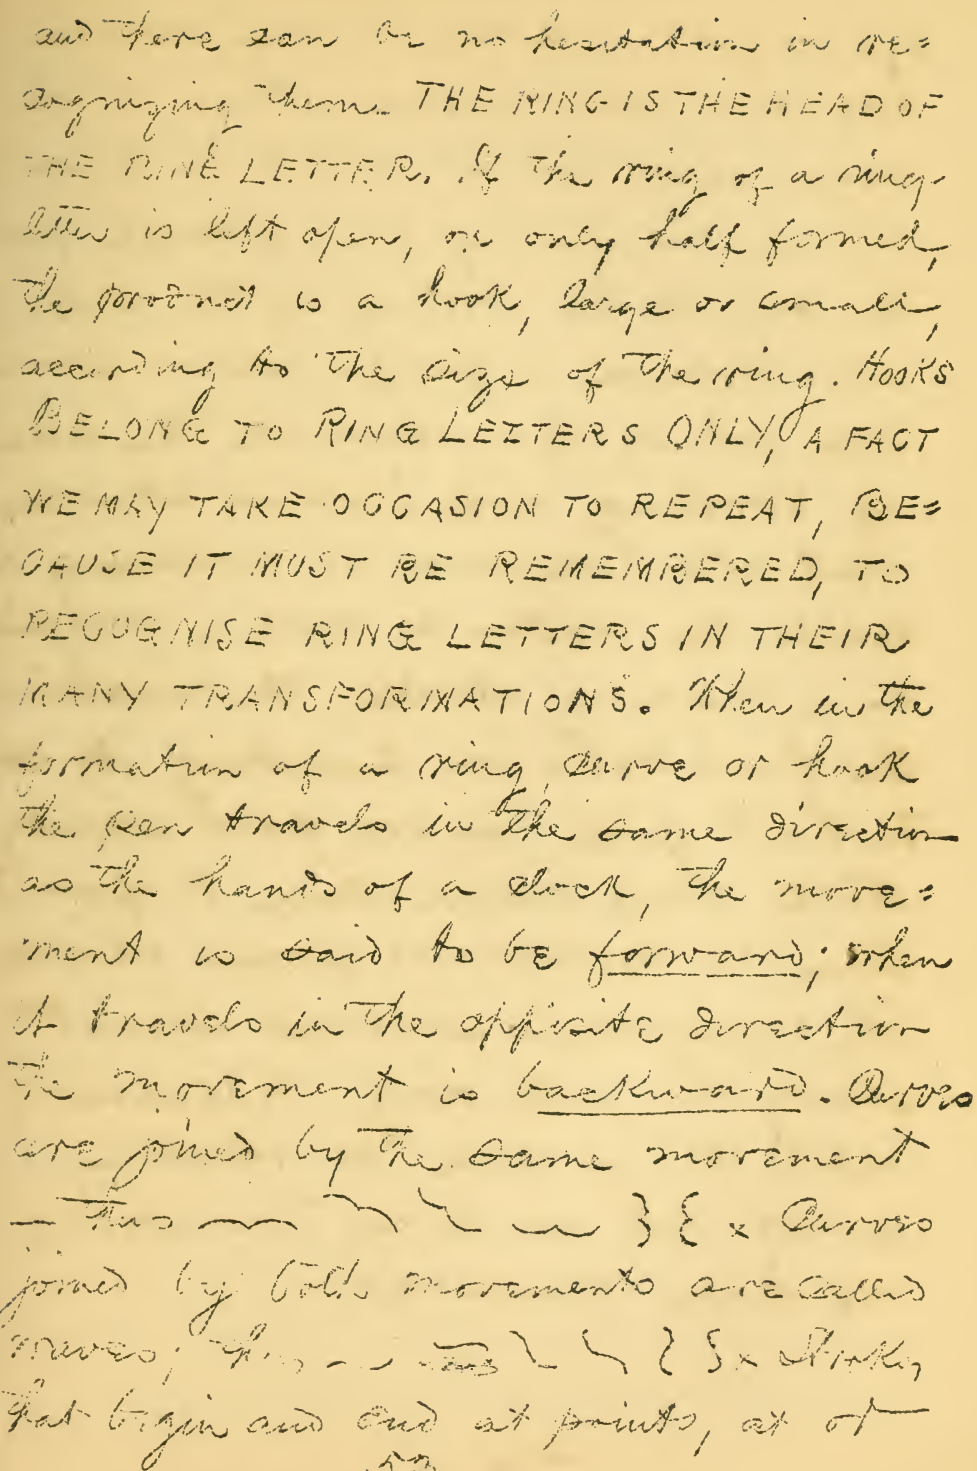 and there can be no hesitation in re=
cognizing them. THE RING IS THE HEAD OF
THE RING LETTER. If the ring of a ring-
letter is left open, or only half formed,
the product is a hook, large or small,
according to the size of the ring. HOOKS
BELONG TO RING LETTERS ONLY, A FACT
WE MAY TAKE OCCASION TO REPEAT, BE=
CAUSE IT MUST BE REMEMBERED, TO
RECOGNISE RING LETTERS IN THEIR
MANY TRANSFORMATIONS. When in the
formation of a ring, curve or hook
the pen travels in the same direction
as the hands of a clock, the move=
ment is said to be forward; when
it travels in the opposite direction
the movement is backward. Curves
are joined by the same movement
— thus } { × Curves
joined by both movements are called
waves; thus × Strokes
that begin and end at points, at or